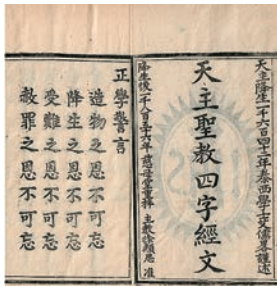 天主降生一千六百四十二年泰西學士艾儒畧謹述
天主聖教四字經文
降生後一千八百五十六年 慈母堂重梓 主教徐類思 准
正學警言
造物之恩不可忘
降生之恩不可忘
受難之恩不可忘
赦罪之恩不可忘